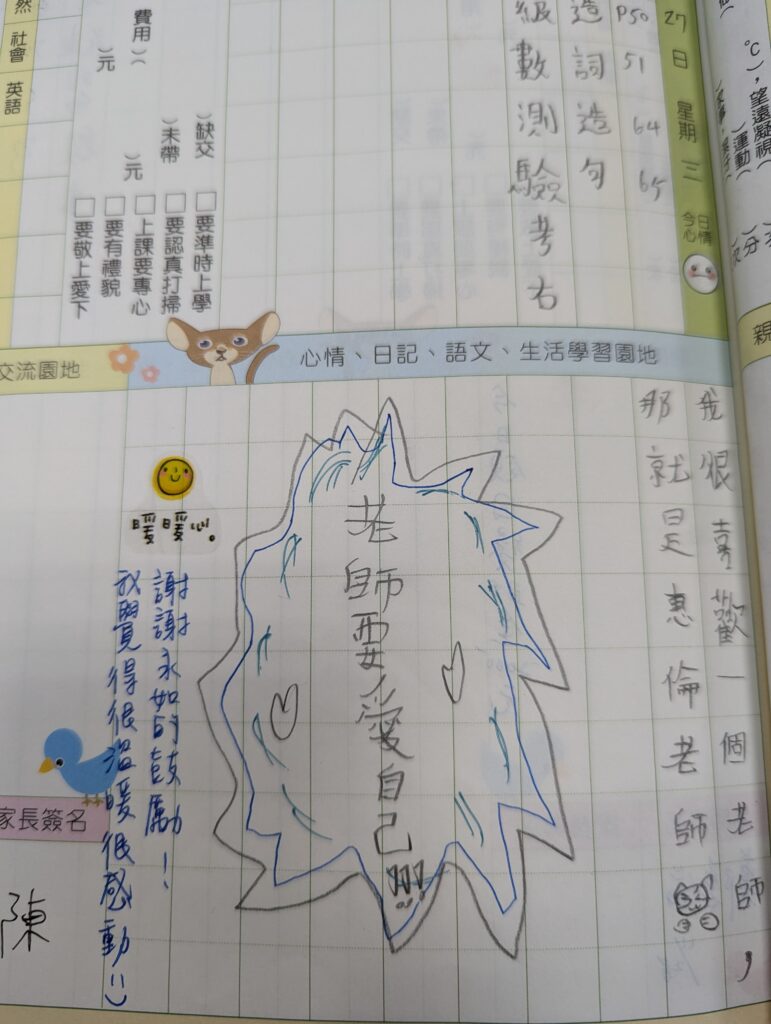 27日 星期三
今日心情
P50 51 64 65
造詞造句
級數測驗考右
)缺交
)未帶
)元
費用)(
)元
□要準時上學
□要認真打掃
□上課要專心
□要有禮貌
□要敬上愛下
然 社會 英語
℃),望遠凝視(
)運動(
親
心情、日記、語文、生活學習園地
交流園地
我很喜歡一個老師,
那就是惠倫老師
老師要愛自己!!!
暖暖心。
謝謝永如的鼓勵!
我覺得很溫暖很感動:)
家長簽名
陳